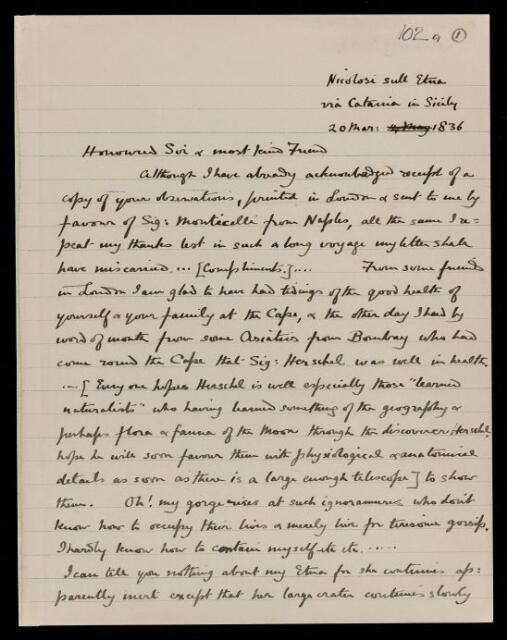 102a ①
Nicolosi sull Etna
via Catania in Sicily
20 Mar: 4 May 1836
Honoured Sir & most kind Friend
Although I have already acknowledged receipt of a
copy of your observations, printed in London & sent to me by
favour of Sig: Monticelli from Naples, all the same I re=
peat my thanks lest in such a long voyage my letter shall
have miscarried. ... [Compliments.] .... From some friends
in London I am glad to have had tidings of the good health of
yourself & your family at the Cape, & the other day I had by
word of mouth from some Asiatics from Bombay who had
come round the Cape that Sig: Herschel was well in health
.... [ Every one hopes Herschel is well especially those "learned
naturalists" who having learned something of the geography &
perhaps flora & fauna of the Moon through the discoverer Herschel,
hope he will soon favour them with physiological & anatomical
details as soon as there is a large enough telescope ] to show
them. Oh! my gorge rises at such ignoramuses who don't
know how to occupy their lives & merely live for tiresome gossip.
I hardly know how to contain myself etc etc. .....
I can tell you nothing about my Etna for she continues ap=
parently inert except that her large crater continues slowly